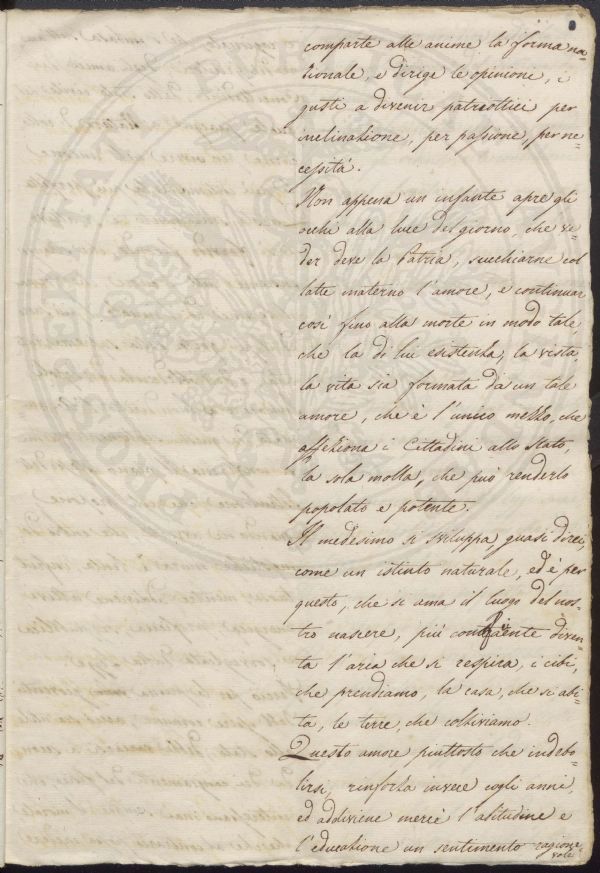 comparte alle anime la forma na=
zionale, e dirige le opinione, i
gusti a divenir patriottici per
inclinazione, per passione, per ne=
cessità.
Non appena un infante apre gli
occhi alla luce del giorno, che ve=
der deve la Patria, succhiarne col
latte materno l'amore, e continuar
così fino alla morte in modo tale
che la di lui esistenza, la vista,
la vita sia formata da un tale
amore, che è l'unico mezzo, che
affeziona i Cittadini allo Stato,
la sola molla, che può renderlo
popolato e potente.
Il medesimo si sviluppa quasi direi,
come un istinto naturale, ed è per
questo, che si ama il luogo del nos=
tro nascere, più diven=
ta l'aria che si respira, i cibi,
che prendiamo, la casa, che si abi=
ta, le terre, che coltiviamo.
Questo amore piuttosto che indebo=
lirsi, rinforza invece cogli anni,
ed addiviene mercè l'abitudine e
l'educazione un sentimento ragione=
vole